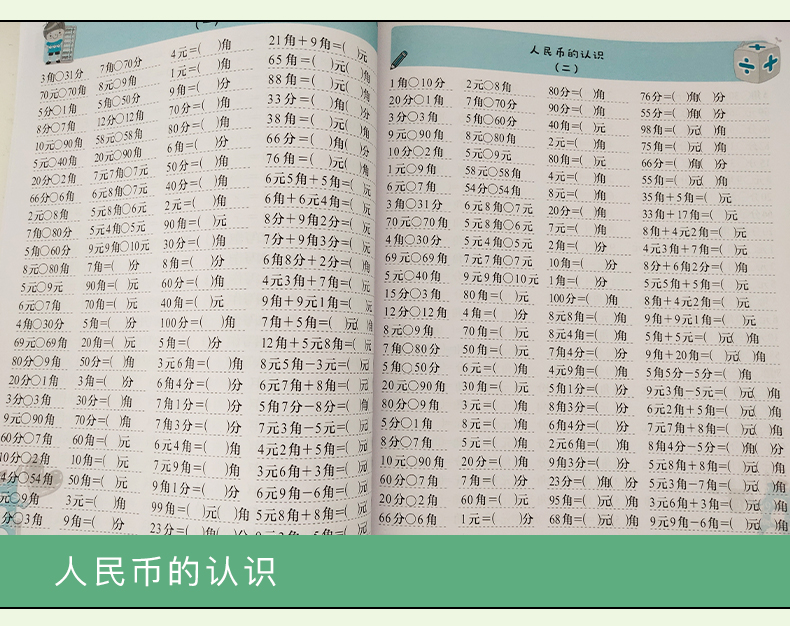 3角○31分 7角○70分 4元=( )角 21角+9角=( )元
70元○70角 8元○9角 1元=( )角 65角=( )元( )角
5分○1角 5角○50分 9角=( )分 88角=( )元( )角
8分○7角 12分○12角 70分=( )角 33分=( )角( )分
10元○90角 58元○58角 80分=( )角 38角=( )元( )角
5元○40角 20元○90角 6角=( )分 66分=( )角( )分
20分○2角 7元7角○7元 50分=( )角 76角=( )元( )角
66分○6角 6元8角○7元 40分=( )角 6元5角+5角=( )元
2元○8角 5元8角○6元 2元=( )角 6角+6元4角=( )元
7角○80分 5元4角○5元 90角=( )元 8分+9角2分=( )角
5角○60分 9元9角○10元 30分=( )角 7分+9角3分=( )角
8元○80角 7角=( )分 8角=( )分 6角8分+2分=( )角
5元○9元 90角=( )元 60分=( )角 4元3角+7角=( )元
6元○7角 70角=( )元 40角=( )元 9角+9元1角=( )元
4角○30分 5角=( )分 100分=( )角 7角+5角=( )元( )角
69元○69角 20角=( )元 5角=( )分 12角+5元8角=( )元
80分○9角 50分=( )角 3元6角=( )角 8元5角-3元=( )元
20分○1角 3角=( )分 6角4分=( )分 6元7角+8角=( )元
3分○3角 30分=( )角 7角1分=( )分 5角7分-8分=( )角
9元○90角 70分=( )角 7角3分=( )分 7元3角-5元=( )元
60分○7角 60角=( )元 6元4角=( )角 4元2角+5角=( )元
10分○2角 10角=( )元 7元9角=( )角 3元6角+3角=( )元
4分○54角 50角=( )元 9角1分=( )分 6元9角-6角=( )元
元○9角 3元=( )角 99角=( )元( )角 5元8角+8角=( )元
分○3角 9角=( )分 23分=( )角( )分
人民币的认识
(二)
1角○10分 2元○8角 80分=( )角 76分=( )角( )分
20分○1角 7角○70分 90分=( )角 55分=( )角( )分
3分○3角 5角○60分 40角=( )元 98角=( )元( )角
9元○90角 8元○80角 2元=( )角 75角=( )元( )角
10分○2角 5元○9元 80角=( )元 66分=( )角( )分
1元○9角 58元○58角 4元=( )角 55角=( )元( )角
6元○7角 54分○54角 8元=( )角 35角+5角=( )元
3角○31分 6元8角○7元 20分=( )角 33角+17角=( )元
70元○70角 5元8角○6元 7元=( )角 8角+4元2角=( )元
4角○30分 5元4角○5元 2角=( )分 4元3角+7角=( )元
69元○69角 7元7角○7元 10角=( )分 8分+6角2分=( )角
5元○40角 9元9角○10元 1角=( )分 5元5角+5角=( )元
15分○3角 80角=( )元 100分=( )角 8角+4元2角=( )元
12分○12角 4角=( )分 8元8角=( )角 9角+9元1角=( )元
8元○9角 70角=( )元 8元4角=( )角 5角+5元=( )元( )角
7角○80分 50角=( )元 7角4分=( )分 9角+20角=( )元( )角
5角○50分 6元=( )角 4元9角=( )角 5角5分-5分=( )角
20元○90角 30角=( )元 5角1分=( )分 9元3角-5元=( )元( )角
80分○9角 3元=( )角 8角3分=( )分 6元2角+5角=( )元( )角
5分○1角 8元=( )角 6角4分=( )分 7元7角+8角=( )元( )角
8分○7角 5元=( )角 2元6角=( )角 8角4分-5分=( )角( )分
10元○90角 20分=( )角 9角3分=( )分 5元8角+8角=( )元( )角
60分○7角 7角=( )分 23分=( )角( )分 5元3角-7角=( )元( )角
20分○2角 60角=( )元 95角=( )元( )角 3元6角+3角=( )元( )角
66分○6角 1元=( )分 68角=( )元( )角 9元9角-6角=( )元( )角
人民币的认识